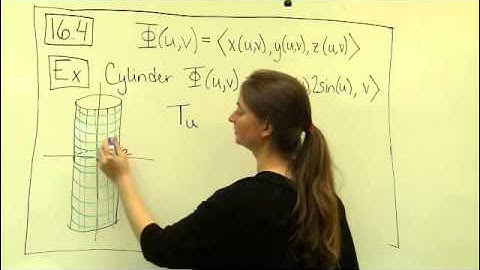 16.4 Φ(u,v) = ⟨x(u,v), y(u,v), z(u,v)⟩
Ex Cylinder Φ(u,v) ), 2sin(u), v⟩
Tu
2